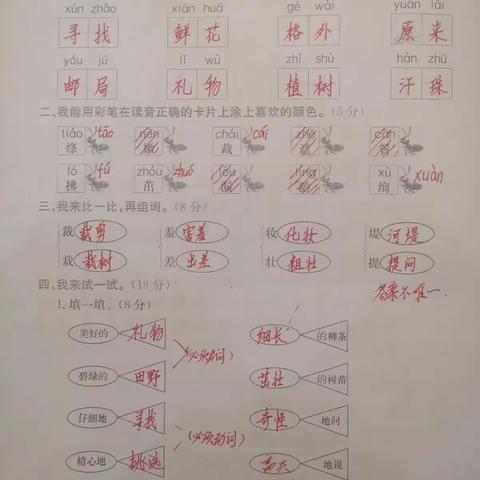 xún zhǎo xiān huā gé wài yuán lái
寻找 鲜花 格外 原来
yóu jú lǐ wù zhí shù hàn zhū
邮局 礼物 植树 汗珠
二、我能用彩笔在读音正确的卡片上涂上喜欢的颜色。(5分)
tiáo tāo nèn chái cái zhē
绦 嫩 裁 遮
fó fú zhóu zhuó xù xuàn
拂 茁 绚
三、我来比一比,再组词。(8分)
裁 裁剪 羞 害羞 妆 化妆 堤 河堤
栽 栽树 差 出差 壮 粗壮 提 提问
四、我来试一试。(19分) 答案不唯一.
1.填一填。(8分)
美好的 礼物 细长 的柳条
(必须名词)
碧绿的 田野 茁壮 的树苗
仔细地 寻找 奇怪 地问
精心地 挑选 高兴 地说